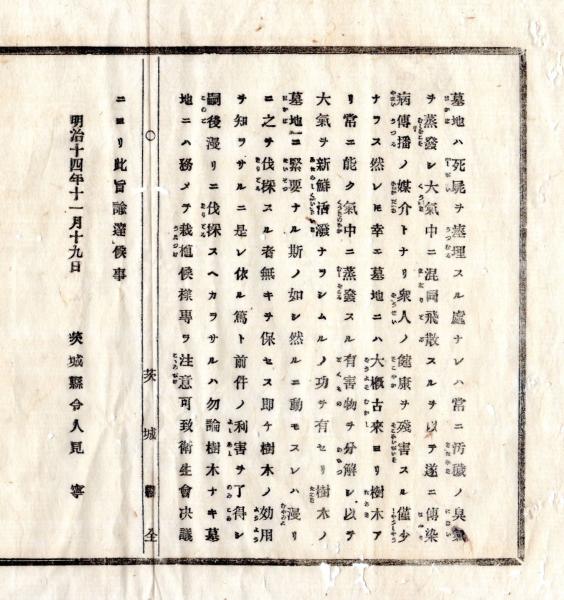 墓地ハ死屍ヲ埋理スル處ナレハ常ニ汚穢ノ臭氣
ヲ蒸發シ大氣中ニ混同飛散スルヲ以テ遂ニ傳染
病傳播ノ媒介トナリ衆人ノ健康ヲ殘害スル僅少
ナラス然レ𪜈幸ニ墓地ニハ大概古來ヨリ樹木ア
リ常ニ能ク氣中ニ蒸發スル有害物ヲ分解シ以テ
大氣ヲ新鮮活潑ナラシムルノ功ヲ有セリ樹木ノ
墓地ニ緊要ナル斯ノ如シ然ルニ動モスレハ漫リ
ニ之ヲ伐採スル者無キヲ保セス即ケ樹木ノ効用
ヲ知ラサルニ是レ依ル篤ト前件ノ利害ヲ了得シ
嗣後漫リニ伐採スヘカラサルハ勿論樹木ナキ墓
地ニハ務メテ栽植候様專ラ注意可致衛生會决議
〇 茨城縣 全
ニヨリ此旨諭達候事
明治十四年十一月十九日 茨城縣令人見寧